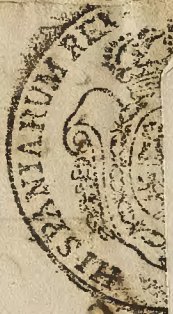 HISPANIARUM REX